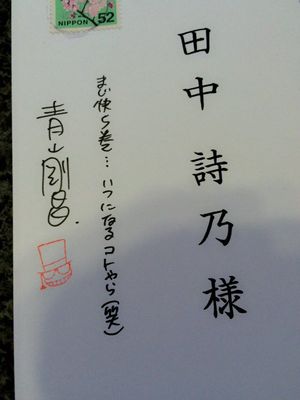 田中 詩乃 様
まじ快5巻…いつになるコトやら(笑)
青山剛昌.
NIPPON 52